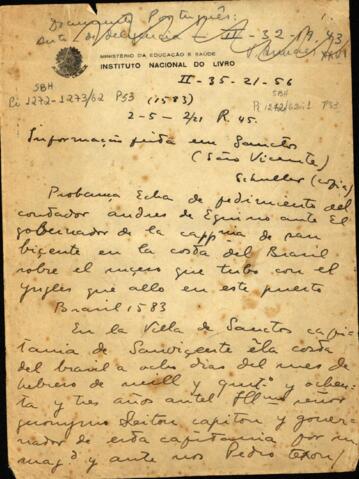 Documento Português:
Auto de diligencia - II-32-17, 43
MINISTÉRIO DA EDUCAÇÃO E SAÚDE
INSTITUTO NACIONAL DO LIVRO
II-35-21-56
SBH
Ri 1272-1273/62 P53 (1583)
SBH
2-5-2/21 R. 45.
Informação feita em Sanctos
(São Vicente)
Schuller (copia)
Probança Echa de pedimiento del
contador andres de Eguino ante El
gobernador de la cappnia de san
bicente en la costa del Brasil
sobre el suçeso que tubo con el
yngles que allo en este puerto
Brasil 1583
En la Villa de Sanctos capi
tania de Sanvicente ē la costa
del brasil a ocho dias del mes de
hebrero de mill y quinᵒ y ochen
ta y tres años antel Illmo señor
geronymo Leiton capitan y gover
nador de esta capitania por su
magᵈ. y ante nos Pedro